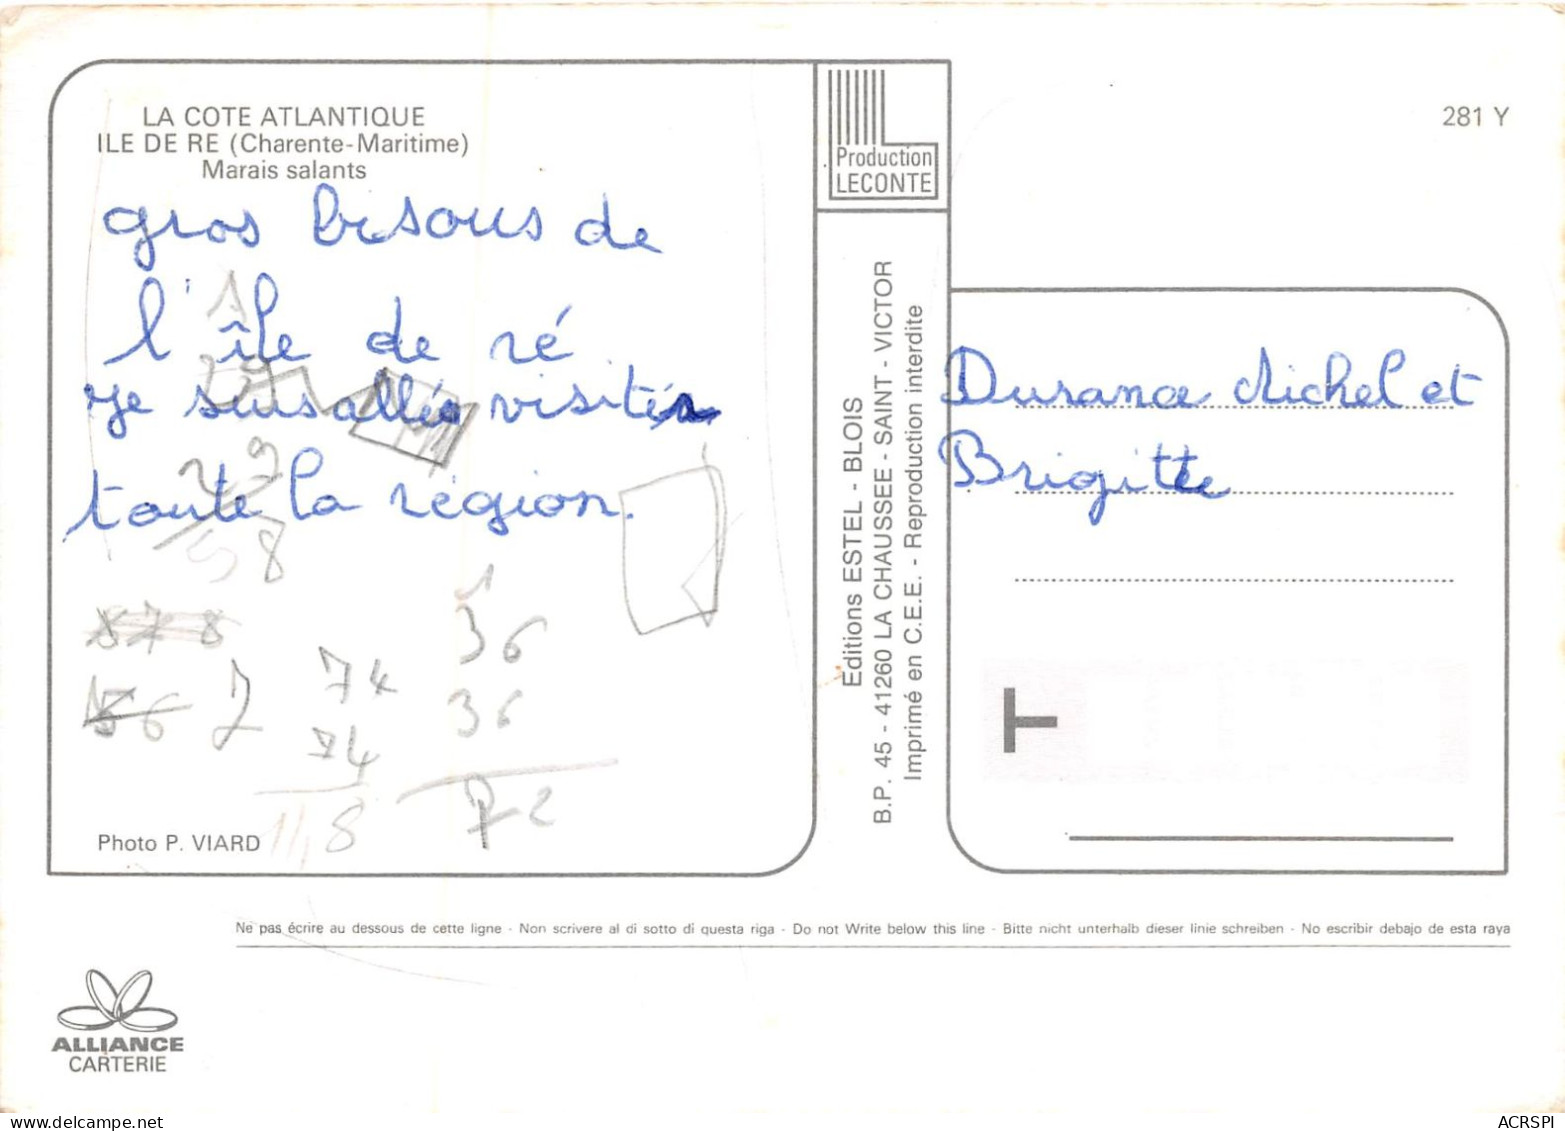 LA COTE ATLANTIQUE
ILE DE RE (Charente-Maritime)
Marais salants
gros bisous de
l'île de ré
je suis allée visiter
toute la région.
1
29
29
58
74
74
118
1
36
36
72
Photo P. VIARD
Production
LECONTE
Editions ESTEL - BLOIS
B.P. 45 - 41260 LA CHAUSSEE - SAINT - VICTOR
Imprimé en C.E.E. - Reproduction interdite
281 Y
Durance Michel et
Brigitte
T
Ne pas écrire au dessous de cette ligne - Non scrivere al di sotto di questa riga - Do not Write below this line - Bitte nicht unterhalb dieser linie schreiben - No escribir debajo de esta raya
ALLIANCE
CARTERIE
ACRSPI